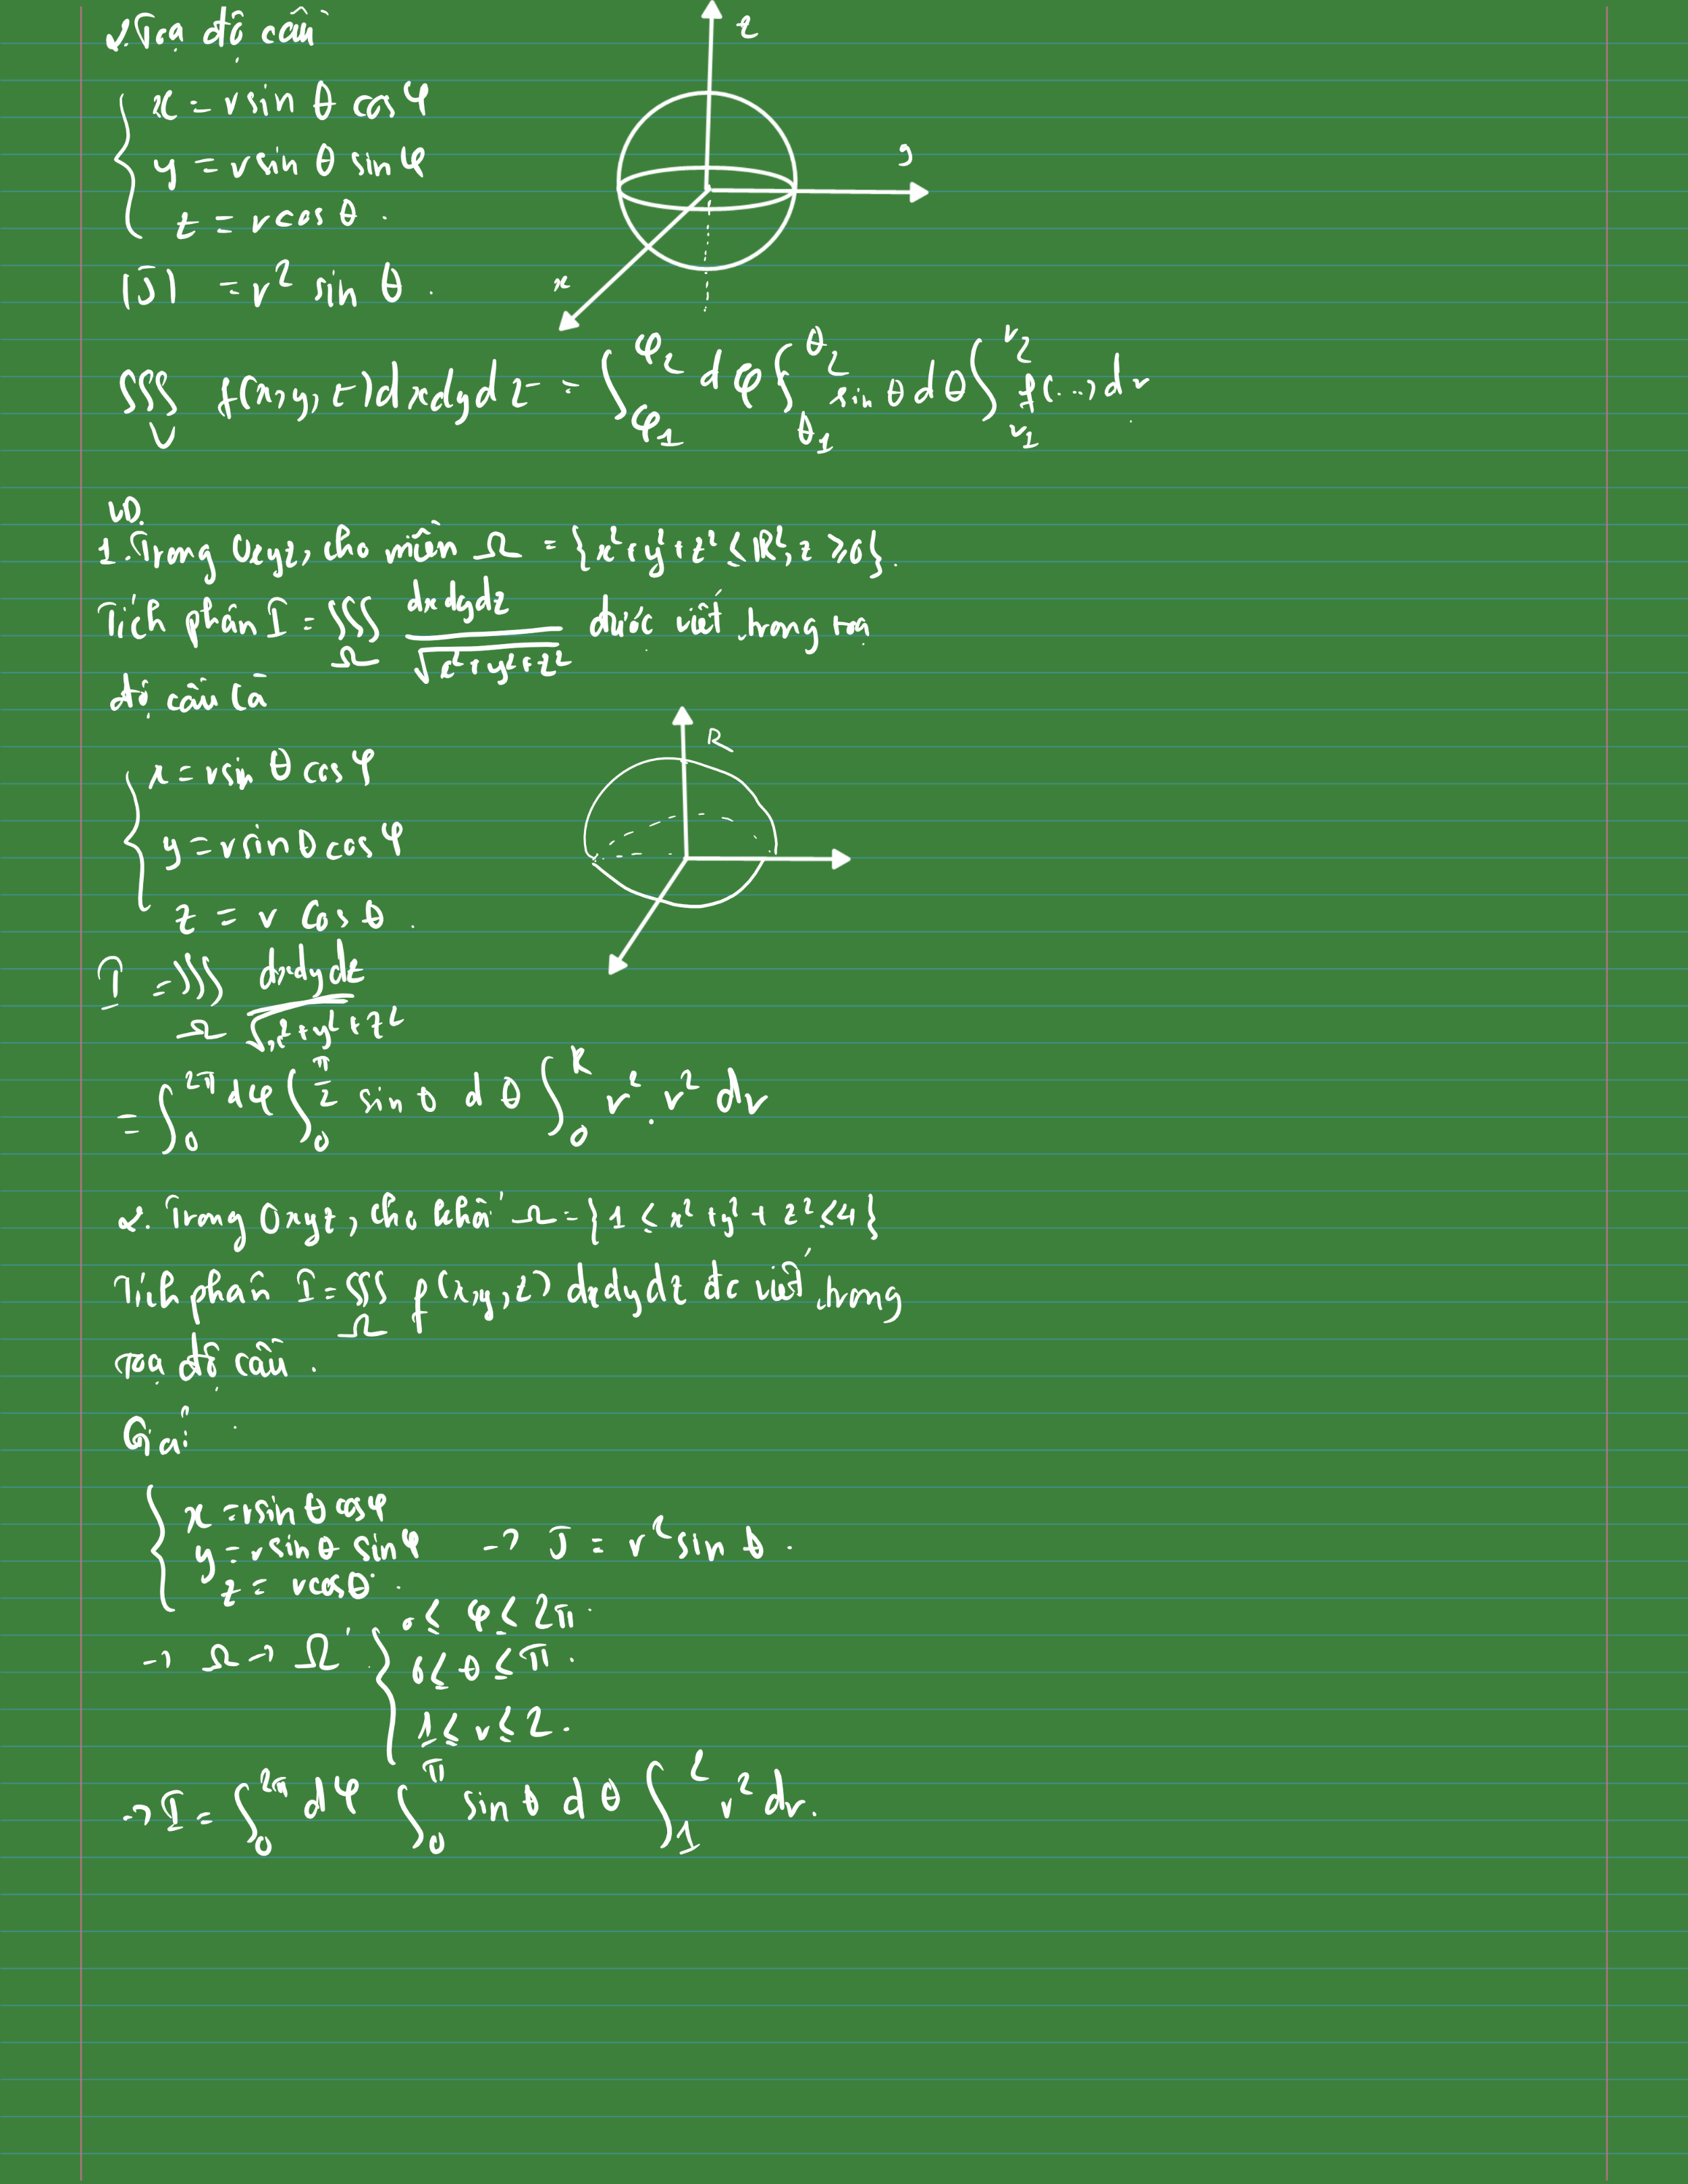 2. Toạ độ cầu
z
x = r sin θ cos φ
y = r sin θ sin φ
y
z = r cos θ.
|J| = r² sin θ.
x
∭_V f(x, y, z) dxdydz = ∫_{φ₁}^{φ₂} dφ ∫_{θ₁}^{θ₂} sin θ dθ ∫_{r₁}^{r₂} f(...) dr.
VD.
1. Trong Oxyz, cho miền Ω = {x² + y² + z² ≤ R², z ≥ 0}.
Tích phân I = ∭_Ω dxdydz / √(x² + y² + z²) được viết trong toạ
độ cầu là
R
x = r sin θ cos φ
y = r sin θ cos φ
z = r cos θ.
I = ∭_Ω dxdydz / √(x² + y² + z²)
= ∫_0^{2π} dφ ∫_0^{π/2} sin θ dθ ∫_0^R r². r² dr
2. Trong Oxyz, cho khối Ω = {1 ≤ x² + y² + z² ≤ 4}
Tích phân I = ∭_Ω f(x, y, z) dxdydz đc viết trong
Toạ độ cầu.
Giải
x = r sin θ cos φ
y = r sin θ sin φ → J = r² sin θ.
z = r cos θ.
0 ≤ φ ≤ 2π.
→ Ω → Ω' 0 ≤ θ ≤ π.
1 ≤ r ≤ 2.
→ I = ∫_0^{2π} dφ ∫_0^π sin θ dθ ∫_1^2 r² dr.